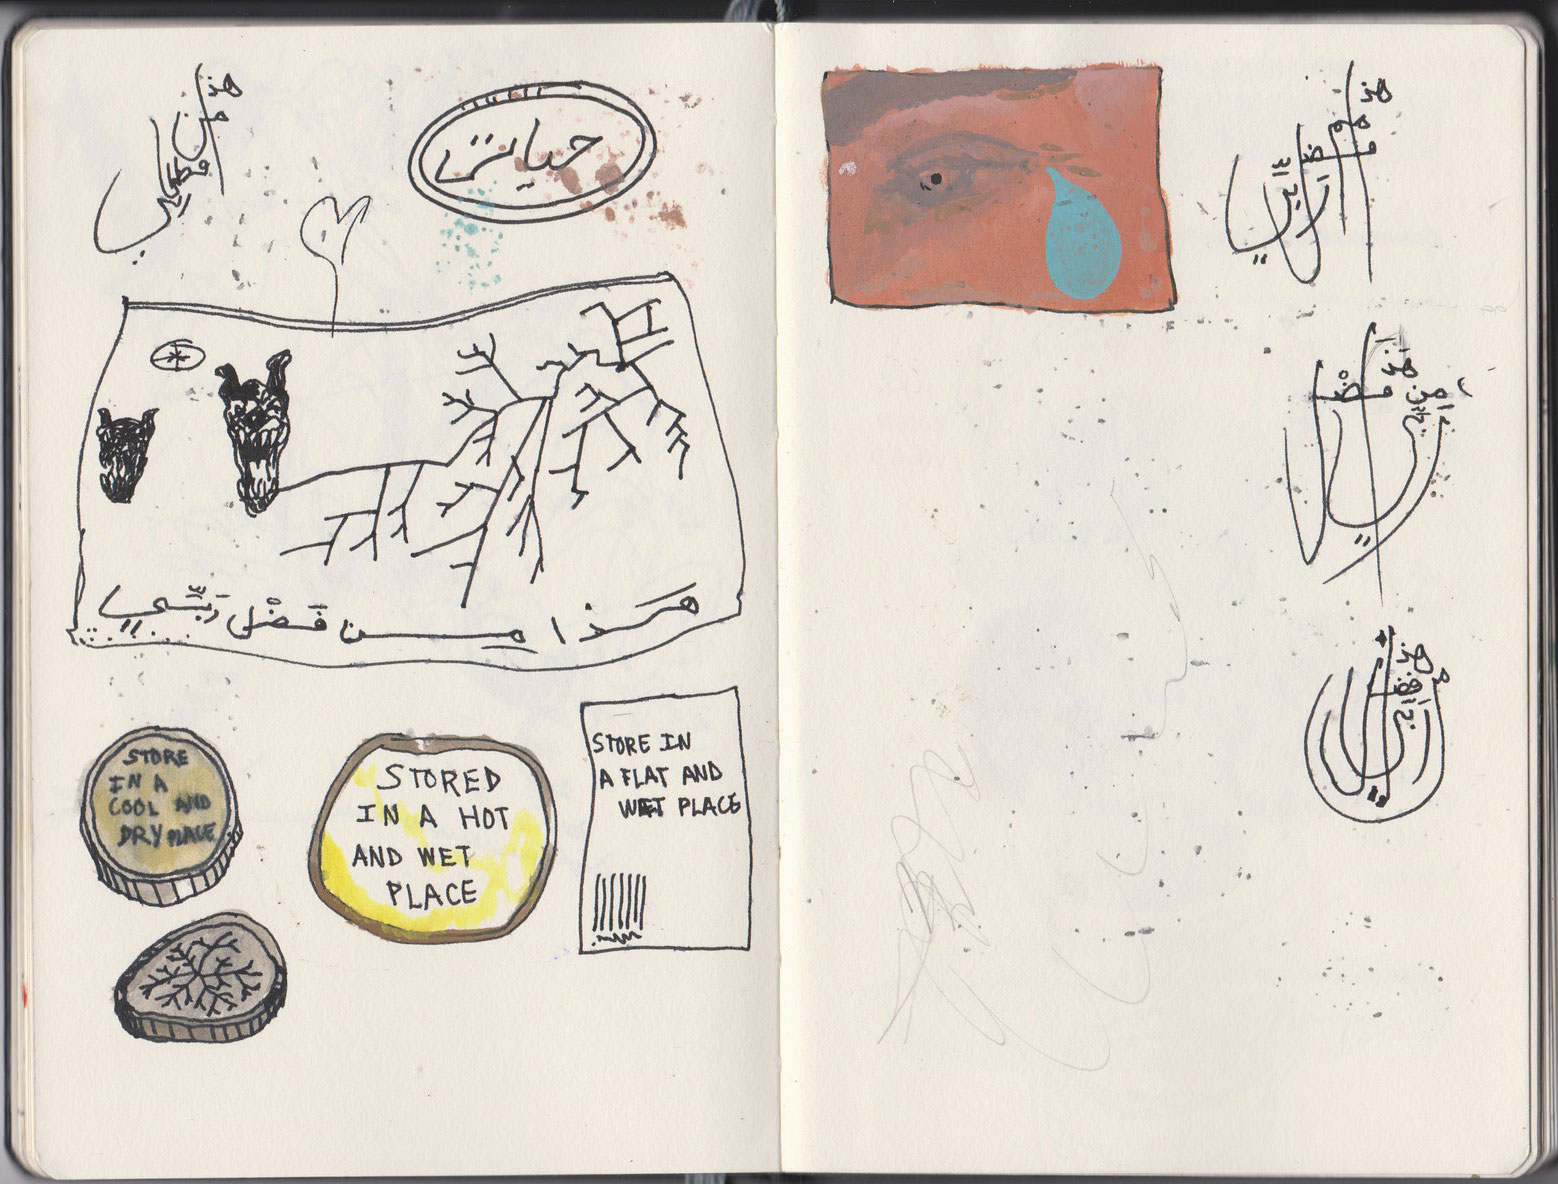 هذا من فضل ربي
حياتي
هَـذا مـن فَضْل رَبّي
STORE
IN A
COOL AND
DRY PLACE
STORED
IN A HOT
AND WET
PLACE
STORE IN
A FLAT AND
WET PLACE
هذا من فضل ربي
هذا من فضل ربي
هذا من فضل ربي